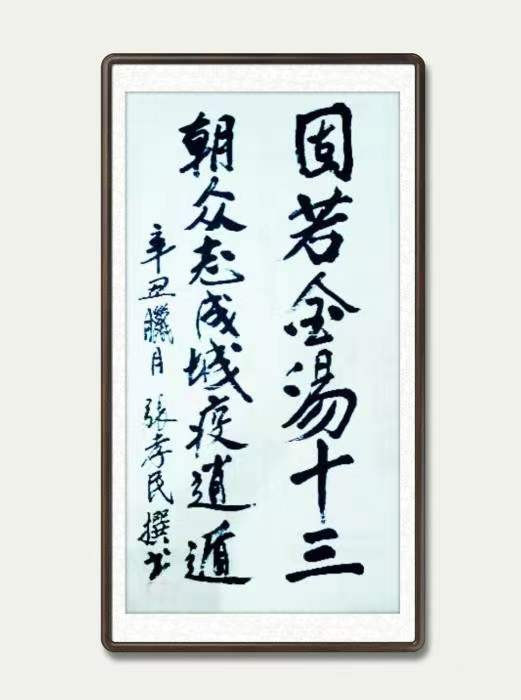 固若金湯十三
朝众志成城疫逍遁
辛丑臘月 張孝民撰书